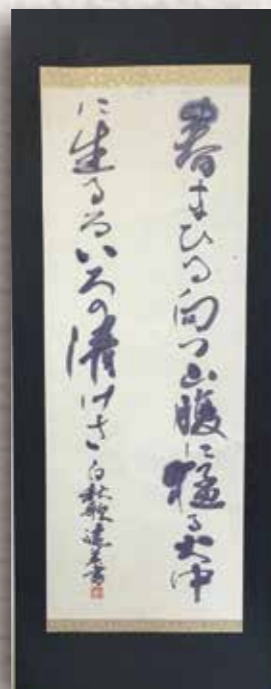 春まひる向つ山腹に猛る火の中
に生るるいろの清けさ 白秋歌 書